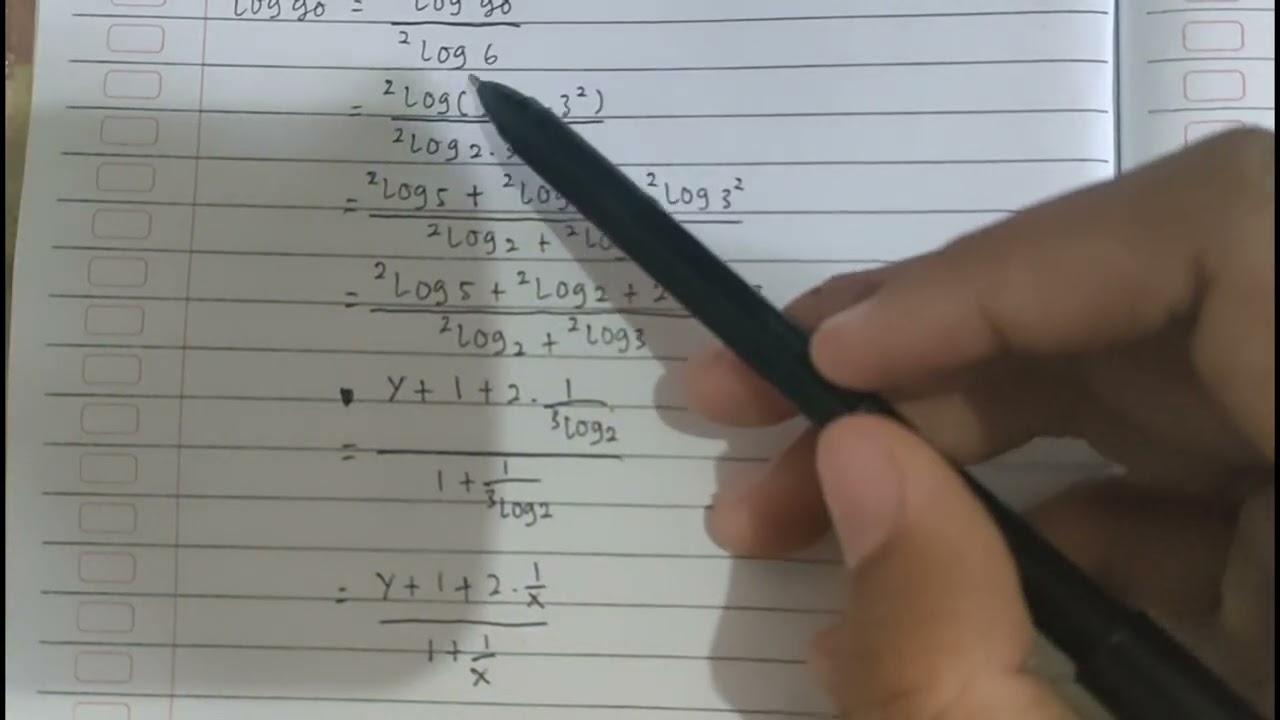 log 90 = log 90
²log 6
= ²log( 3²)
²log 2 .
= ²log 5 + ²log ²log 3²
²log 2 + ²
= ²log 5 + ²log 2 + 2
²log 2 + ²log 3
y + 1 + 2 . 1
³log 2
=
1 + 1
³log 2
= y + 1 + 2 . 1/x
1 + 1/x